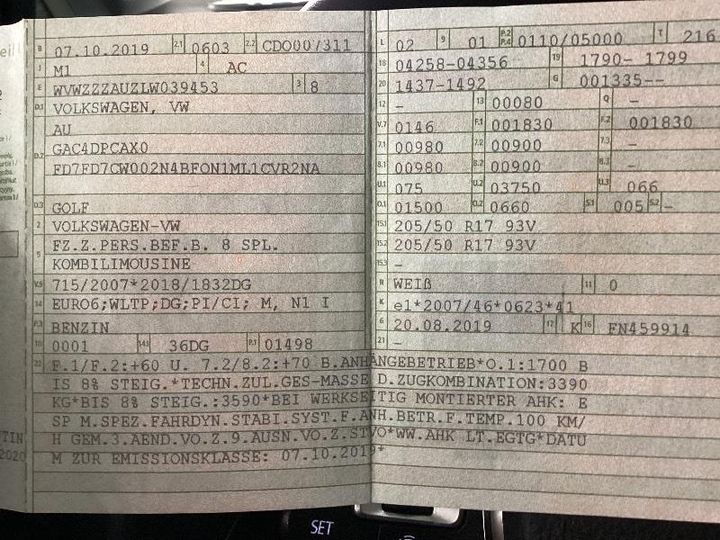 B 07.10.2019 2.1 0603 2.2 CDO007311
J M1 4 AC
E WVWZZZAUZLW039453 3 8
D.1 VOLKSWAGEN, VW
AU
D.2 GAC4DPCAX0
FD7FD7CW002N4BFON1ML1CVR2NA
D.3 GOLF
2 VOLKSWAGEN-VW
5 FZ.Z.PERS.BEF.B. 8 SPL.
KOMBILIMOUSINE
V.9 715/2007*2018/1832DG
14 EURO6;WLTP;DG;PI/CI; M, N1 I
P.3 BENZIN
10 0001 14.1 36DG P.1 01498
L 02 9 01 P.2 P.4 0110/05000 T 216
18 04258-04356 19 1790- 1799
20 1437-1492 G 001335--
12 - 13 00080 Q -
V.7 0146 F.1 001830 F.2 001830
7.1 00980 7.2 00900 7.3 -
8.1 00980 8.2 00900 8.3 -
U.1 075 U.2 03750 U.3 066
O.1 01500 O.2 0660 S.1 005 S.2 -
15.1 205/50 R17 93V
15.2 205/50 R17 93V
15.3 -
R WEIß 11 0
K e1*2007/46*0623*41
6 20.08.2019 17 K 16 FN459914
21 -
22 F.1/F.2:+60 U. 7.2/8.2:+70 B.ANHÄNGEBETRIEB*O.1:1700 B
IS 8% STEIG.*TECHN.ZUL.GES-MASSE D.ZUGKOMBINATION:3390
KG*BIS 8% STEIG.:3590*BEI WERKSEITIG MONTIERTER AHK: E
SP M.SPEZ.FAHRDYN.STABI.SYST.F.ANH.BETR.F.TEMP.100 KM/
H GEM.3.AEND.VO.Z.9.AUSN.VO.Z.STVO*WW.AHK LT.EGTG*DATU
M ZUR EMISSIONSKLASSE: 07.10.2019*
TIN
2020
SET